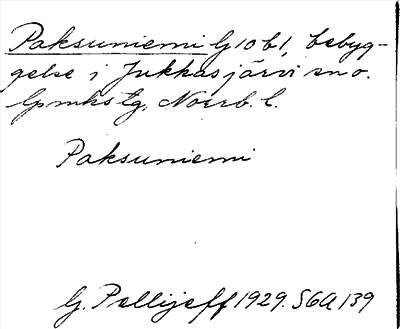 Paksuniemi G10b1, bebyg-
gelse i Jukkasjärvi sn o.
lpmkstg, Norrb. l.
Paksuniemi
G. Pellijeff 1929. S6A 139